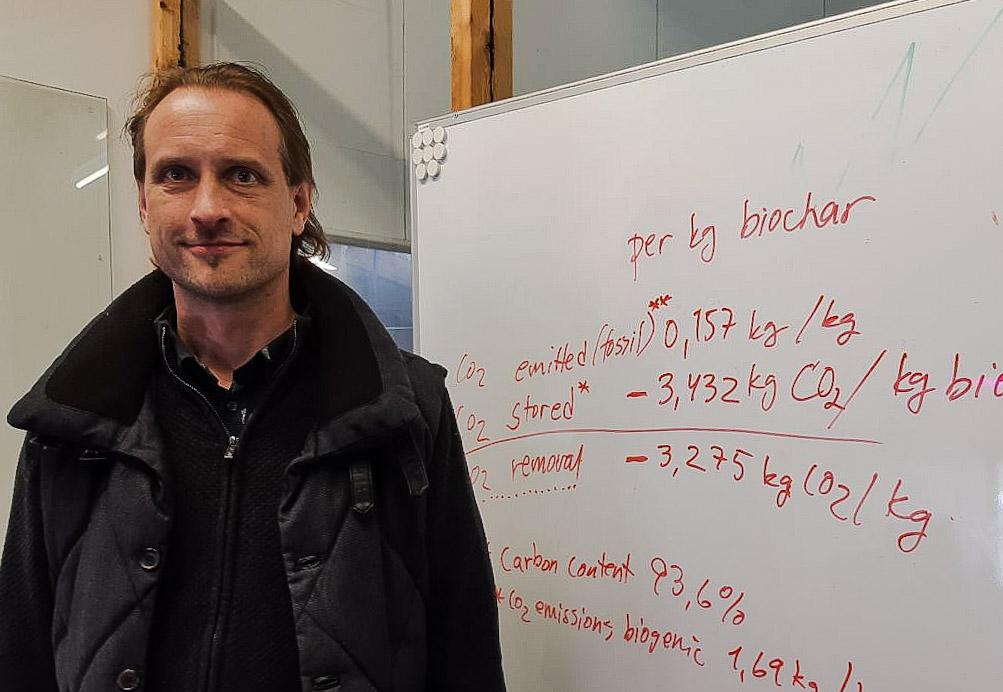 per kg biochar
CO₂ emitted (fossil)** 0,157 kg/kg
CO₂ stored* - 3,432 kg CO₂/kg bio
O₂ removal - 3,275 kg CO₂/kg
* Carbon content 93,6%
* CO₂ emissions, biogenic 1,69 kg/